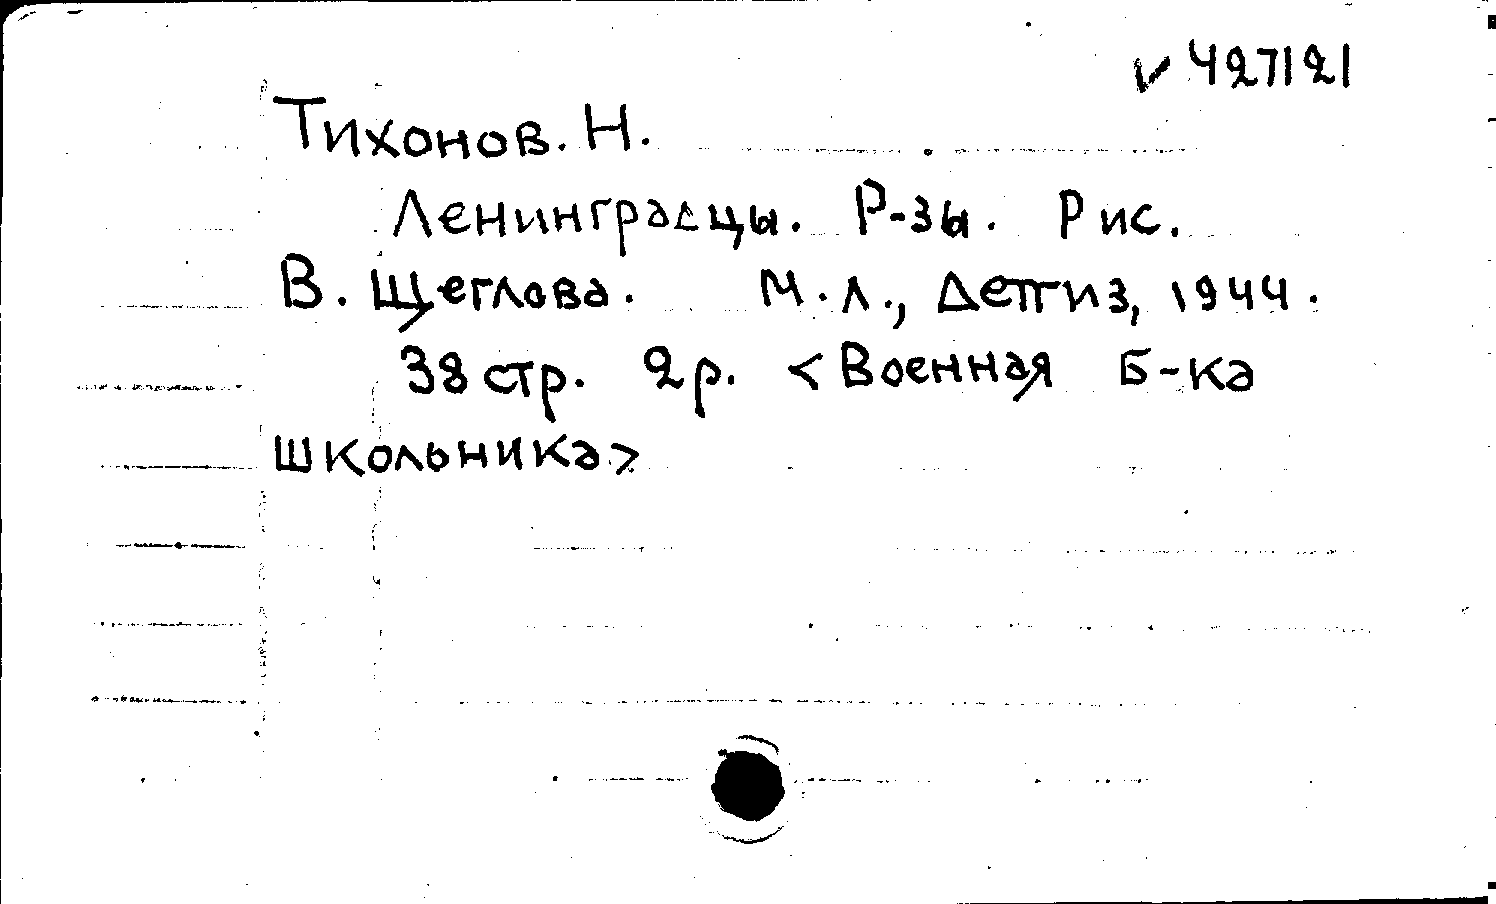 ✓ 427121
Тихонов. Н.
Ленинградцы. Р-зы. Рис.
В. Щеглова. М.Л., Детгиз, 1944.
38 стр. 2р. <Военная Б-ка
школьника>